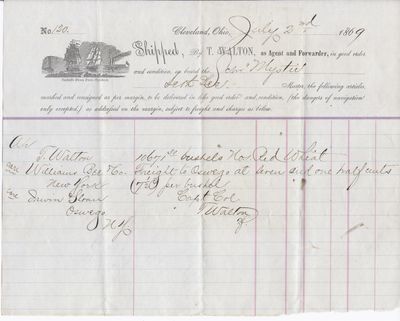 No. 120. Cleveland, Ohio, July 2nd 1869
Shipped, By T. WALTON, as Agent and Forwarder, in good order
and condition, on board the Schr Mystic
Master, the following articles,
marked and consigned as per margin, to be delivered in like good order and condition, (the dangers of navigation
only excepted,) as addressed on the margin, subject to freight and charges as below.
T. Walton 10671 bushels No 1 Red Wheat
Care Williams & Co. Freight to Oswego at seven and one half cents
New York (7½) per bushel
Care Irwin Sloan Capt Col
Oswego T Walton
N.Y.